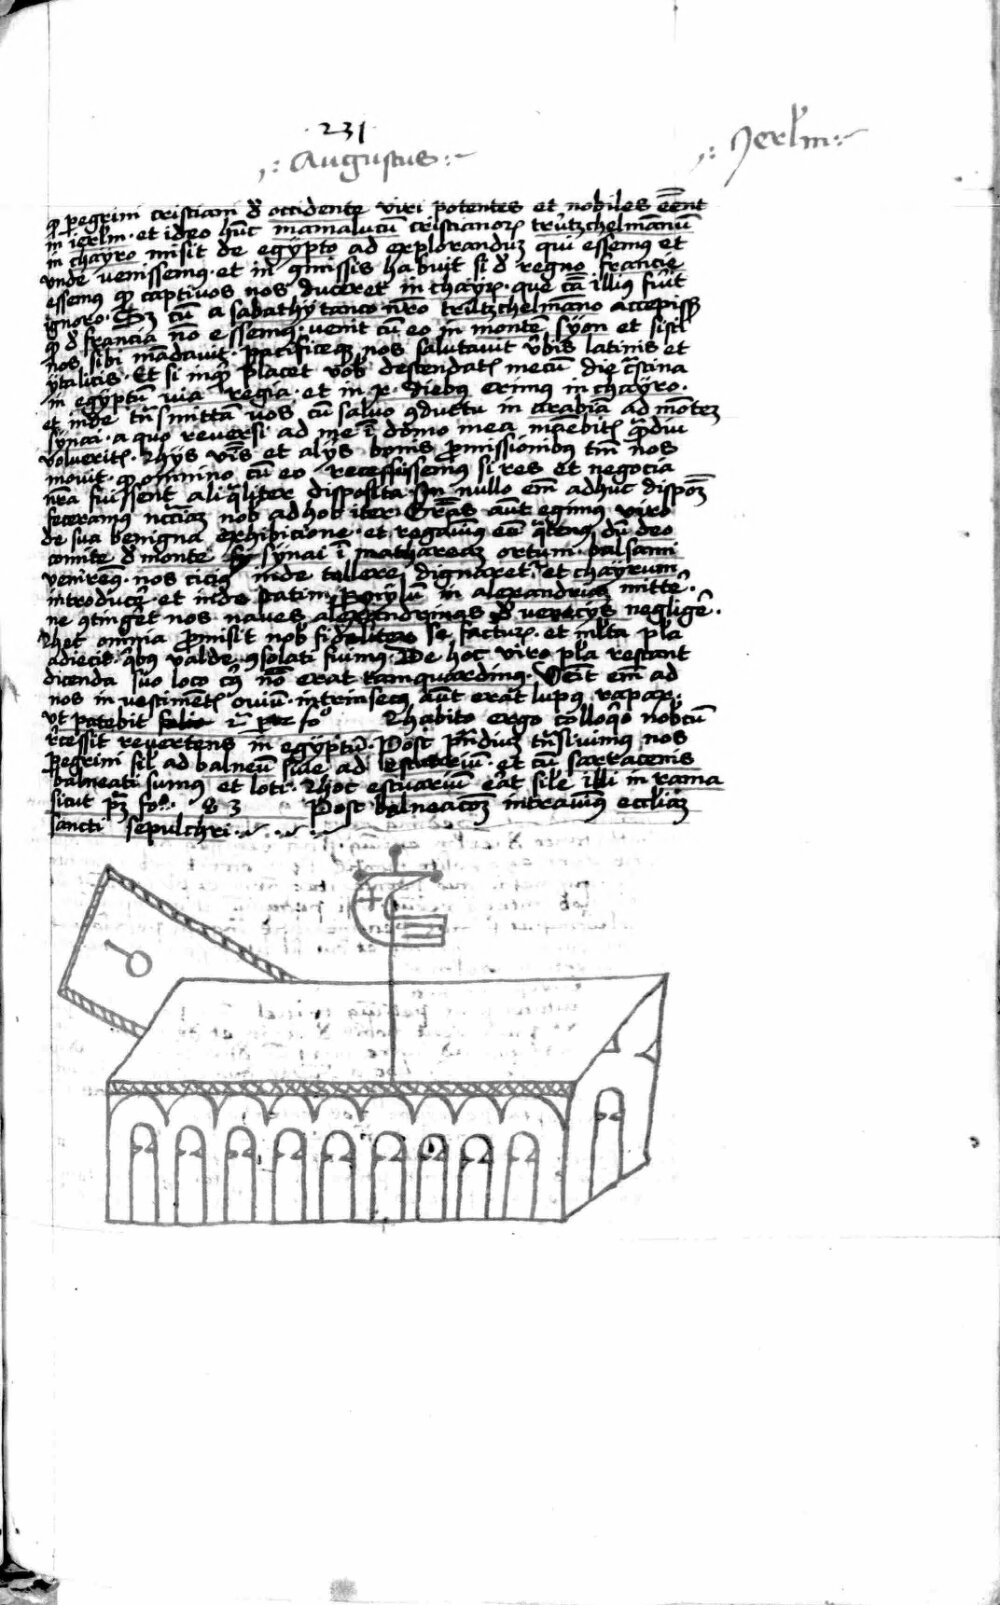 231
Augustus
Jerl̄m
qꝫ peregrini cristiani de occidente viri potentes et nobiles eēnt
in ierl̄m · et ideo hūc mamalucū cristianoꝝ trutzchelmānū
in chayro misit de egypto ad explorandum qui essemus et
unde venissemus · et in ꝯmissis habuit si de regno francie
essemus qꝫ captivos nos duceret in chayꝝ · que cā illius fuīt
ignoro · Sꝫ cū a sabathytanco nr̄o trutzchelmano accepisset
qꝫ de francia nō essemus · venit cū eo in montē syon et
nos sibi mādavit · pacificeqꝫ nos salutavit v̄bis latinis et
ytalicis · Et si inquit placet vob̄ descendatis mecū die crastina
in egyptū via regia · et in x · diebus erimus in chayro ·
et inde trāsmittā vos cū salvo ꝯductu in arabiā ad mōtem
synai · a quo reversi ad me ī domo mea manebitis quādiu
volueritis · Rhys v̄bis et alys bonis promissionibus tm̄ nos
movit · qꝫ omnino cū eo recessissemus si res et negocia
nr̄a fuissent aliqualiter disposita · in nullo em̄ adhuc disposicōꝫ
feceramus nob ad hoc iter · Gr̄as aūt egimus viro
de sua benigna exhibicione · et rogavimus eū quatenus dū deo
comite de monte synai ī mathaream ortum balsami
veniremus · nos cicius inde tollere dignaret' · et chayrum
introducere · et inde statim per nylū in alexandriam mitte ·
ne ꝯtingeret nos naves alexandrinas de venecys negligē ·
Rhec omnia promisit nob fideliter se facturꝝ · et ml̄ta pl̄a
adiecit · quibus valde ꝯsolati fuimus · De hoc viro pl̄a restant
dicenda suo loco nō erat tamquardinus · Venit em̄ ad
nos in vestimentis oviū · intrinsecus aūt erat lupus rapax ·
ut patebit fo Rhabito ergo colloquio nobcū
recessit revertens in egyptū · Post prandium trāsivimus nos
peregrini sil̄ ad balneū sive ad estuariū · et cū sarracenis
balneati sumus et loti · Rhoc estuariū erat sil̄e illi in rama
sicut fo · 83 Post balneacōꝫ intravimus eccl̄iam
sancti sepulchri ·